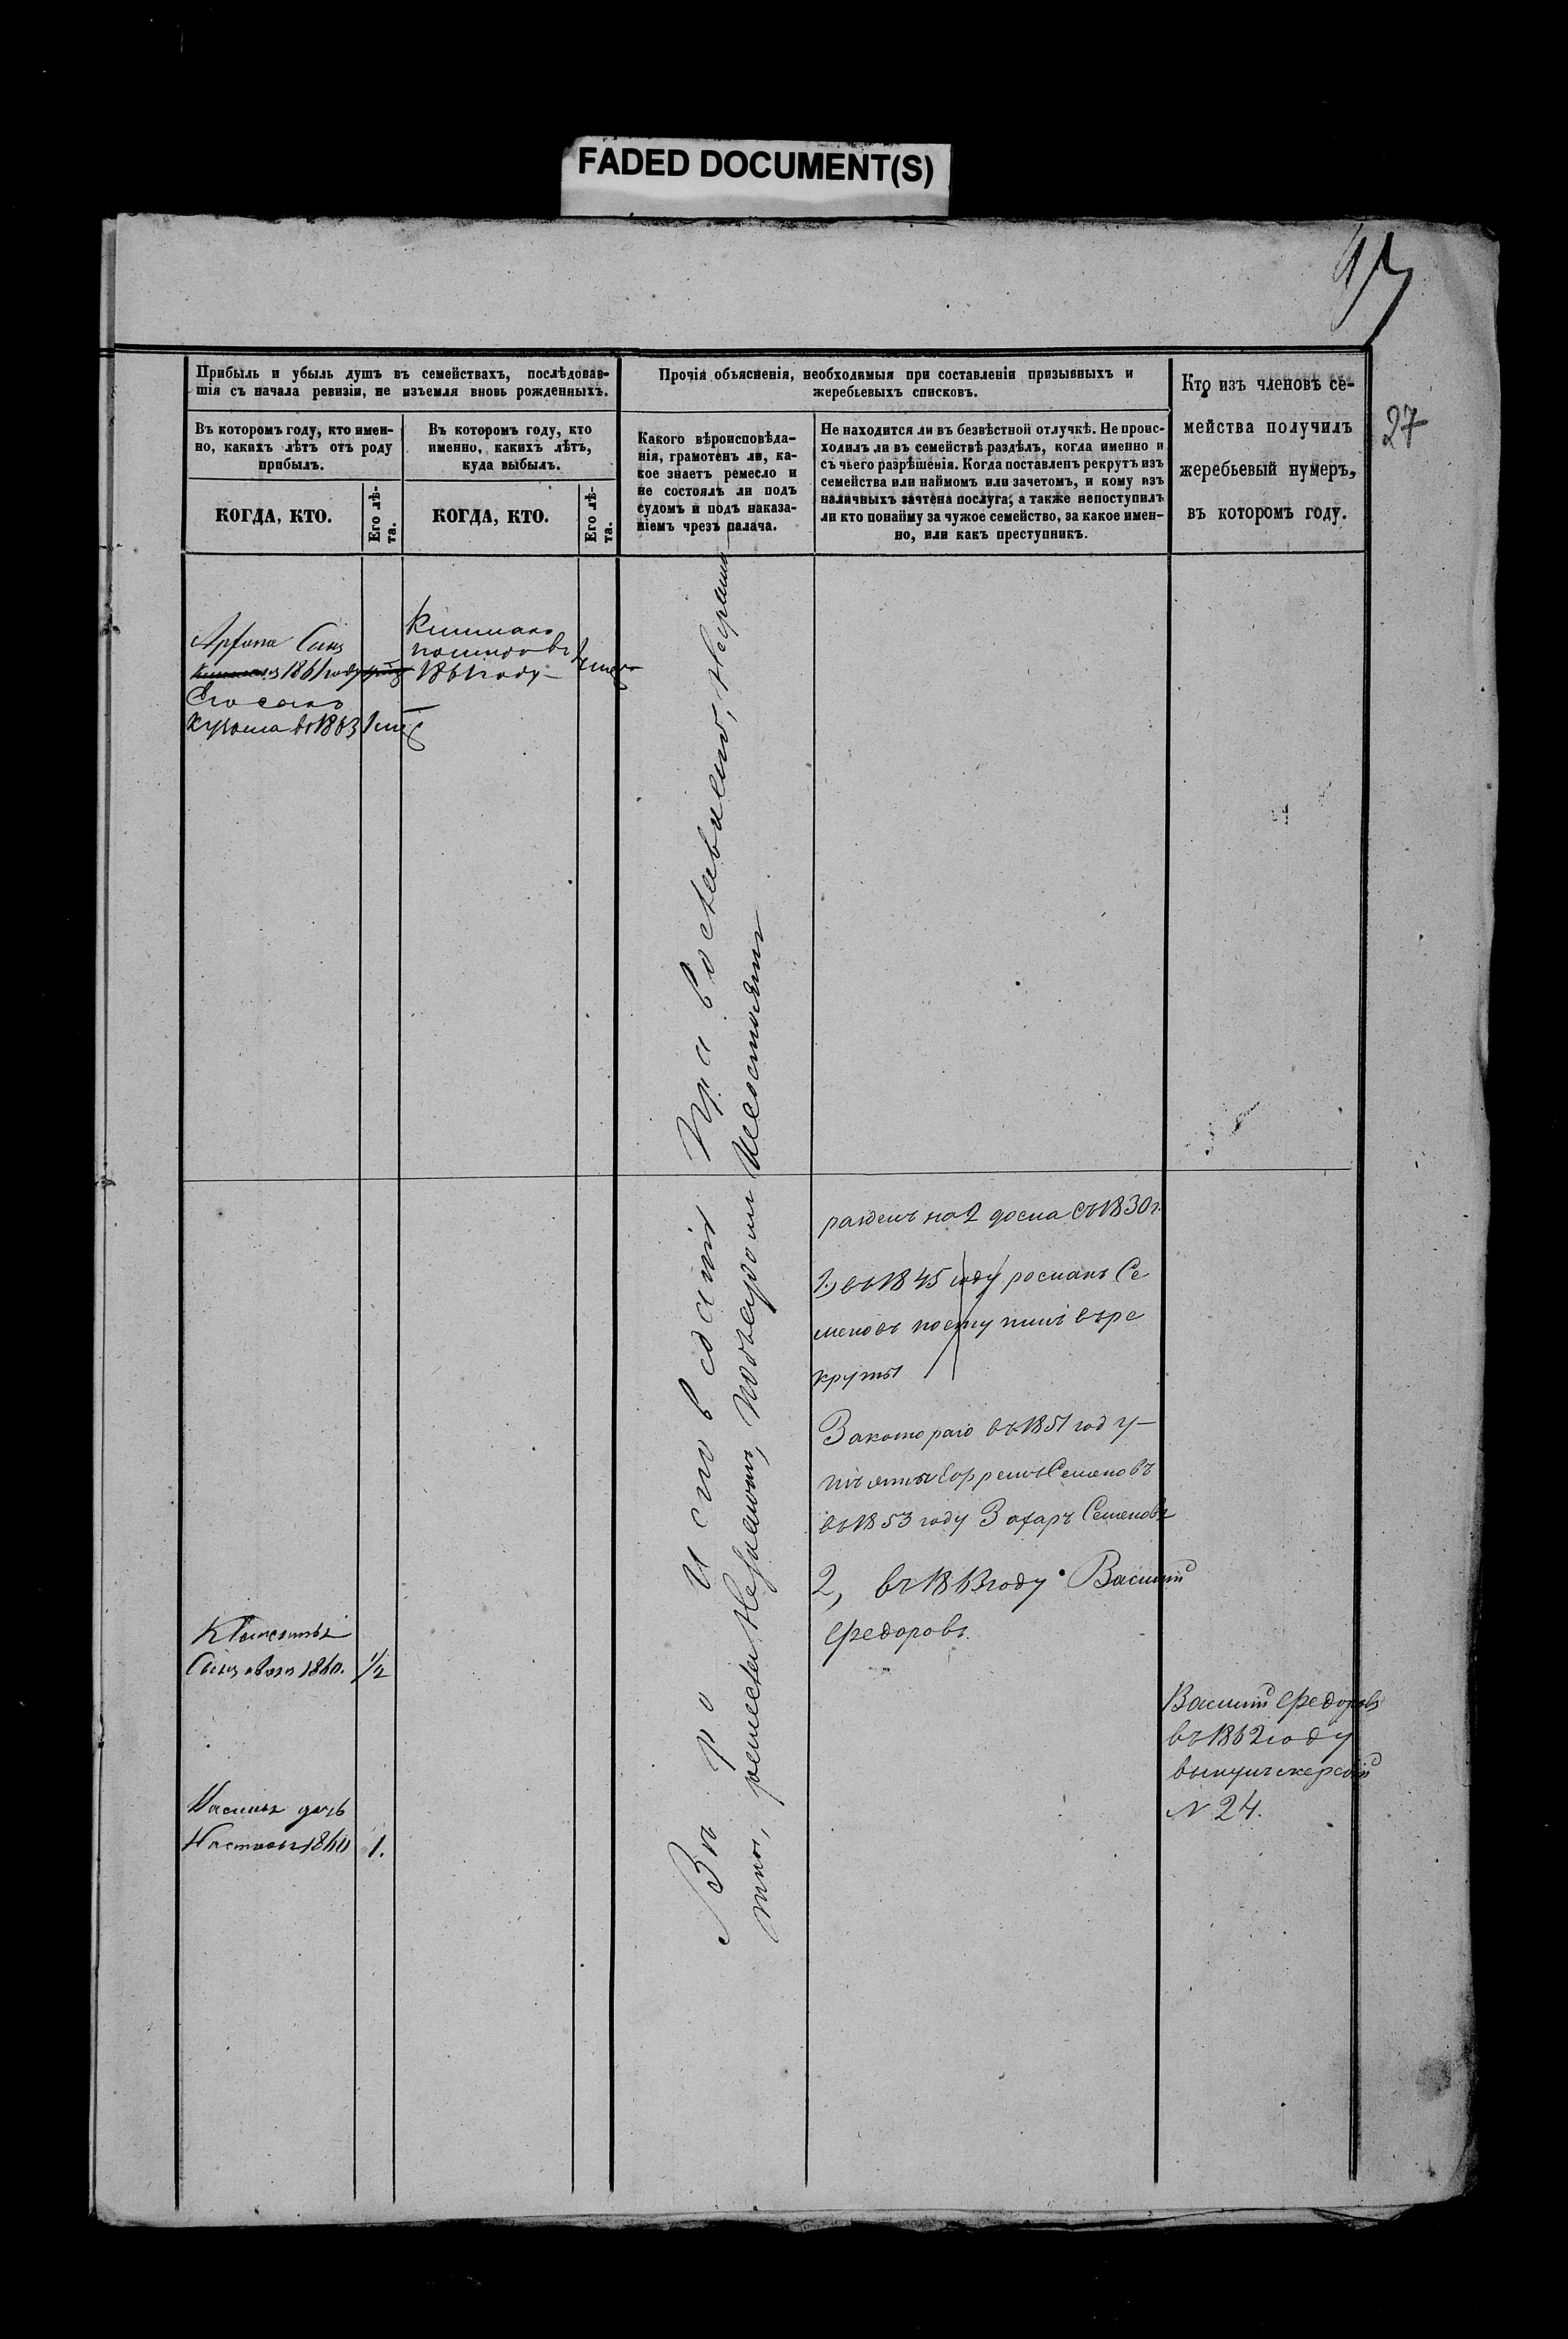 FADED DOCUMENT(S)
47
27
Прибыль и убыль душъ въ семействахъ, послѣдовав-
шія съ начала ревизіи, не изъемля вновь рожденныхъ.
Въ которомъ году, кто имен-
но, какихъ лѣтъ отъ роду
прибылъ.
КОГДА, КТО.
Его лѣ-
та.
Въ которомъ году, кто
именно, какихъ лѣтъ,
куда выбылъ.
КОГДА, КТО.
Его лѣ-
та.
Прочія объясненія, необходимыя при составленіи призывныхъ и
жеребьевыхъ списковъ.
Какого вѣроисповѣда-
нія, грамотенъ ли, ка-
кое знаетъ ремесло и
не состоялъ ли подъ
судомъ и подъ наказа-
ніемъ чрезъ палача.
Не находится ли въ безвѣстной отлучкѣ. Не проис-
ходилъ ли въ семействѣ раздѣлъ, когда именно и
съ чьего разрѣшенія. Когда поставленъ рекрутъ изъ
семейства или наймомъ или зачетомъ, и кому изъ
наличныхъ зачтена послуга; а также непоступилъ
ли кто понайму за чужое семейство, за какое имен-
но, или какъ преступникъ.
Кто изъ членовъ се-
мейства получилъ
жеребьевый нумеръ,
въ которомъ году.
Сынъ
1861 году
Его сынъ
Кузьма въ 1863
1861 году
Вѣроисповѣданія Православнаго, Неграмо
тны, ремесла незнаютъ, подъсудомъ несостояли
разделъ на 2 дома съ 1830 г.
1, въ 1845 году романъ Се
меновъ поступилъ въ ре
круты
За котораго въ 1851 году
Семеновъ
въ 1853 году Захаръ Семеновъ
2, въ 1863 году Василій
Федоровъ.
Сынъ 1860. 1/2
дочь
Настасья 1860 1.
Василій Федоровъ
въ 1862 году
вынулъ жеребій
N 24.